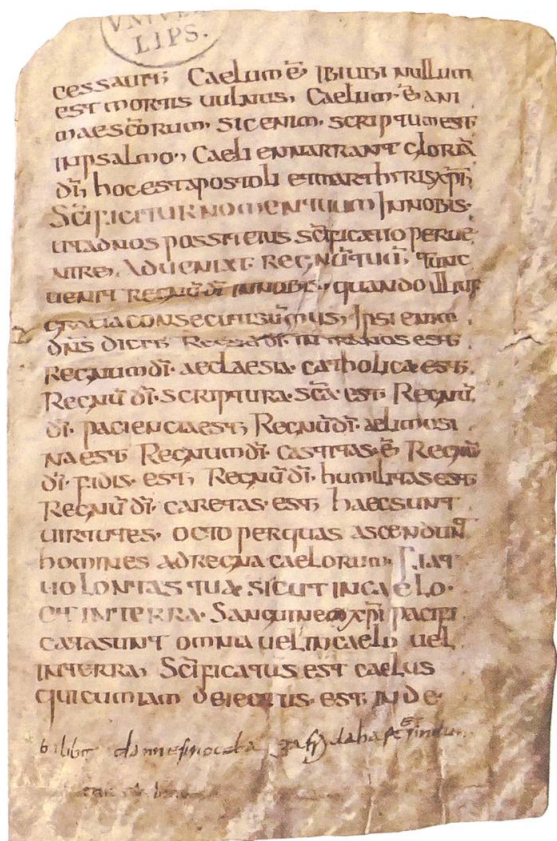 VNIVER
LIPS.
cessauit; Caelum ē, ibi ubi nullum
est mortis uulnus, Caelum·ē ani
maes̄c̄orum· sic enim· scriptum est
inpsalmo·, Caeli ennarrant gloriā
dī; hoc est apostoli et marthyris xp̄ī;
Sc̄īficitur nomen tuum Innobis·
ut ad nos possit eius sc̄īficatio perue
nire, Adueniat· regnū tuū, tunc
uenit regnū dī innobis·, quando
gratia consecuti sumus, Ipsi enim
dn̄s dicit; Regnū dī· intranos est·
Regnum dī· aeclaesia· catholica est·
Regnū dī· scriptura· sc̄a· est· Regnū
dī· paciencia est; Regnū dī· aelimosi
na est· Regnum dī· castitas· ē Regnū
dī· fidis· est; Regnū dī· humilitas est·
Regnū dī· caretas· est; haec sunt
uirtutes· octo per quas ascendunt
homines ad regna caelorum· Fiat
uolontas tua· sicut in caelo·
et in terra· Sanguine xp̄ī pacifi
cata sunt omnia uel, in caelo uel
in terra, Sc̄īficatus est caelus
qui cum iam deiectis· est; inde·